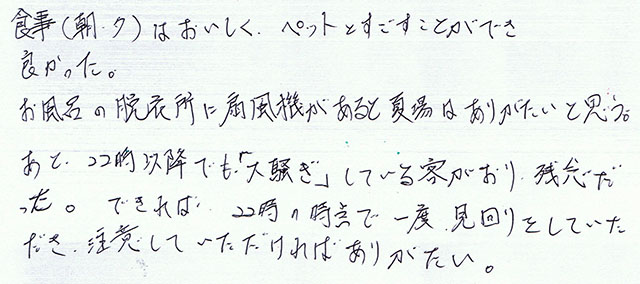 食事(朝・夕)はおいしく、ペットとすごすことができ
良かった。
お風呂の脱衣所に扇風機があると夏場はありがたいと思う。
あと、22時以降でも「大騒ぎ」している客がおり、残念だ
った。できれば、22時の時点で一度、見回りをしていた
だき、注意していただければありがたい。